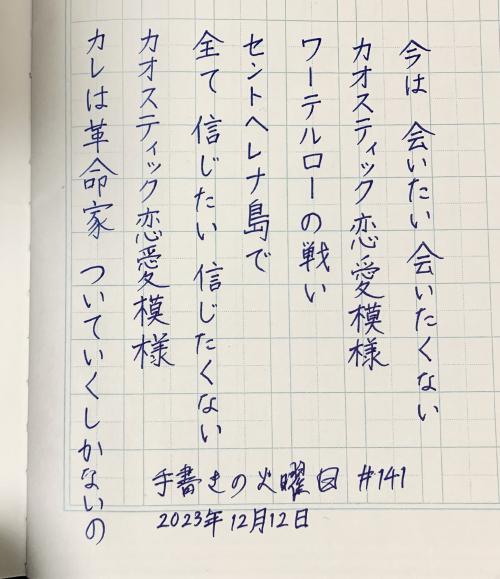 今は 会いたい 会いたくない
カオスティック恋愛模様
ワーテルローの戦い
セントヘレナ島で
全て 信じたい 信じたくない
カオスティック恋愛模様
カレは革命家 ついていくしかないの
手書きの火曜日 #141
2023年12月12日